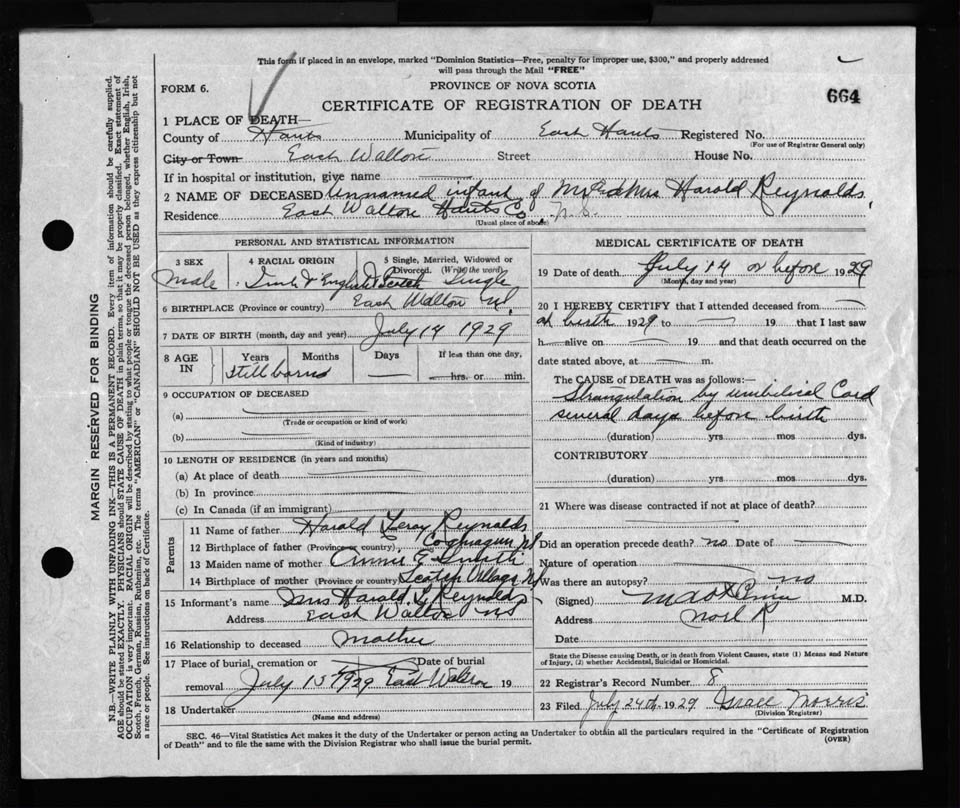 This form if placed in an envelope, marked "Dominion Statistics—Free, penalty for improper use, $300," and properly addressed
will pass through the Mail "FREE"
FORM 6.
PROVINCE OF NOVA SCOTIA
664
CERTIFICATE OF REGISTRATION OF DEATH
1 PLACE OF DEATH—
County of Hants Municipality of East Hants Registered No.
(For use of Registrar General only)
City or Town East Walton Street House No.
If in hospital or institution, give name
2 NAME OF DECEASED Unnamed infant of Mr and Mrs Harold Reynolds,
Residence East Walton Hants Co. N.S.
(Usual place of abode)
PERSONAL AND STATISTICAL INFORMATION
3 SEX
Male
4 RACIAL ORIGIN
& English & Scotch
5 Single, Married, Widowed or
Divorced. (Write the word)
Single
6 BIRTHPLACE (Province or country) East Walton
7 DATE OF BIRTH (month, day and year) July 14 1929
8 AGE
IN
Years
Months
Days
If less than one day,
hrs. or min.
Stillborn
9 OCCUPATION OF DECEASED
(a)
(Trade or occupation or kind of work)
(b)
(Kind of industry)
10 LENGTH OF RESIDENCE (in years and months)
(a) At place of death
(b) In province
(c) In Canada (if an immigrant)
Parents
11 Name of father Harold Leroy Reynolds
12 Birthplace of father (Province or country) Cogmagun NS
13 Maiden name of mother Annie E.
14 Birthplace of mother (Province or country) Scotch Village NS
15 Informant's name Mrs Harold L Reynolds
Address East Walton NS
16 Relationship to deceased Mother
17 Place of burial, cremation or
removal
Date of burial
July 15 1929 East Walton 19
18 Undertaker
(Name and address)
MEDICAL CERTIFICATE OF DEATH
19 Date of death July 14 or before 1929
(Month, day and year)
20 I HEREBY CERTIFY that I attended deceased from
at birth 1929 to 19 that I last saw
h alive on 19 and that death occurred on the
date stated above, at m.
The CAUSE OF DEATH was as follows:—
Strangulation by umbilical Cord
several days before birth
(duration) yrs mos dys.
CONTRIBUTORY
(duration) yrs. mos. dys.
21 Where was disease contracted if not at place of death?
Did an operation precede death? no Date of
Nature of operation
Was there an autopsy? no
(Signed) M.D.
Address Noel
Date
State the Disease causing Death, or in death from Violent Causes, state (1) Means and Nature
of Injury, (2) whether Accidental, Suicidal or Homicidal.
22 Registrar's Record Number 8
23 Filed July 24th 1929 Grace Morris
(Division Registrar)
SEC. 46—Vital Statistics Act makes it the duty of the Undertaker or person acting as Undertaker to obtain all the particulars required in the "Certificate of Registration
of Death" and to file the same with the Division Registrar who shall issue the burial permit.
(OVER)
MARGIN RESERVED FOR BINDING
N.B.—WRITE PLAINLY WITH UNFADING INK—THIS IS A PERMANENT RECORD. Every item of information should be carefully supplied.
AGE should be stated EXACTLY. PHYSICIANS should STATE CAUSE OF DEATH in plain terms, so that it may be properly classified. Exact statement of
OCCUPATION is very important. RACIAL ORIGIN will be described by stating to what people or tongue the deceased person belonged, whether English, Irish,
Scotch, French, German, Russian, Ruthenian, etc. The terms "AMERICAN" or "CANADIAN" SHOULD NOT BE USED as they express citizenship but not
a race or people. See instructions on back of Certificate.